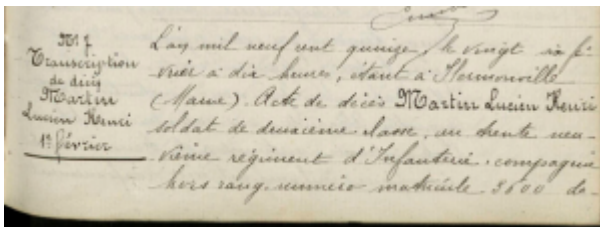 N° 7
Transcription
de décès
Martin
Lucien Henri
1er février
L'an mil neuf cent quinze, le vingt six fé-
vrier à dix heures, étant à Hermonville
(Marne). Acte de décès Martin Lucien Henri
soldat de deuxième classe, au trente neu-
vième régiment d'Infanterie, compagnie
hors rang, numéro matricule 3600 dé-